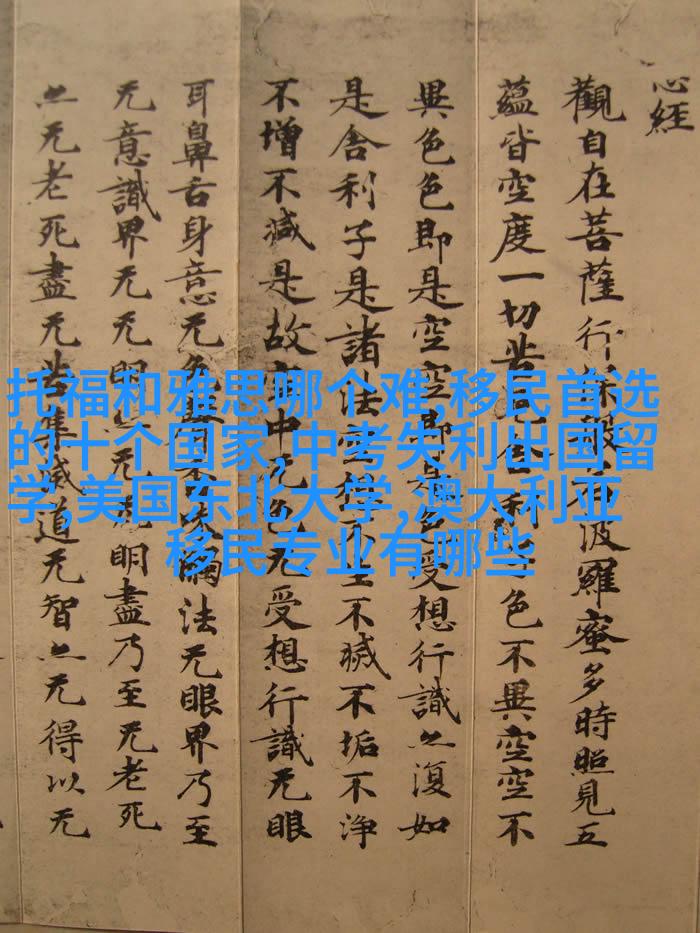 心經
觀自在菩薩行深般若波羅蜜多時照見五
蘊皆空度一切苦厄舍利子色不異空空不
異色色即是空空即是色受想行識亦復如
是舍利子是諸法空相不生不滅不垢不淨
不增不減是故空中无色无受想行識无眼
耳鼻舌身意无色聲香味觸法无眼界乃至
无意識界无无明亦无无明盡乃至无老死
亦无老死盡无苦集滅道无智亦无得以无
托福和雅思哪个难,移民首选
的十个国家,中考失利出国留
学,美国东北大学,澳大利亚
移民专业有哪些